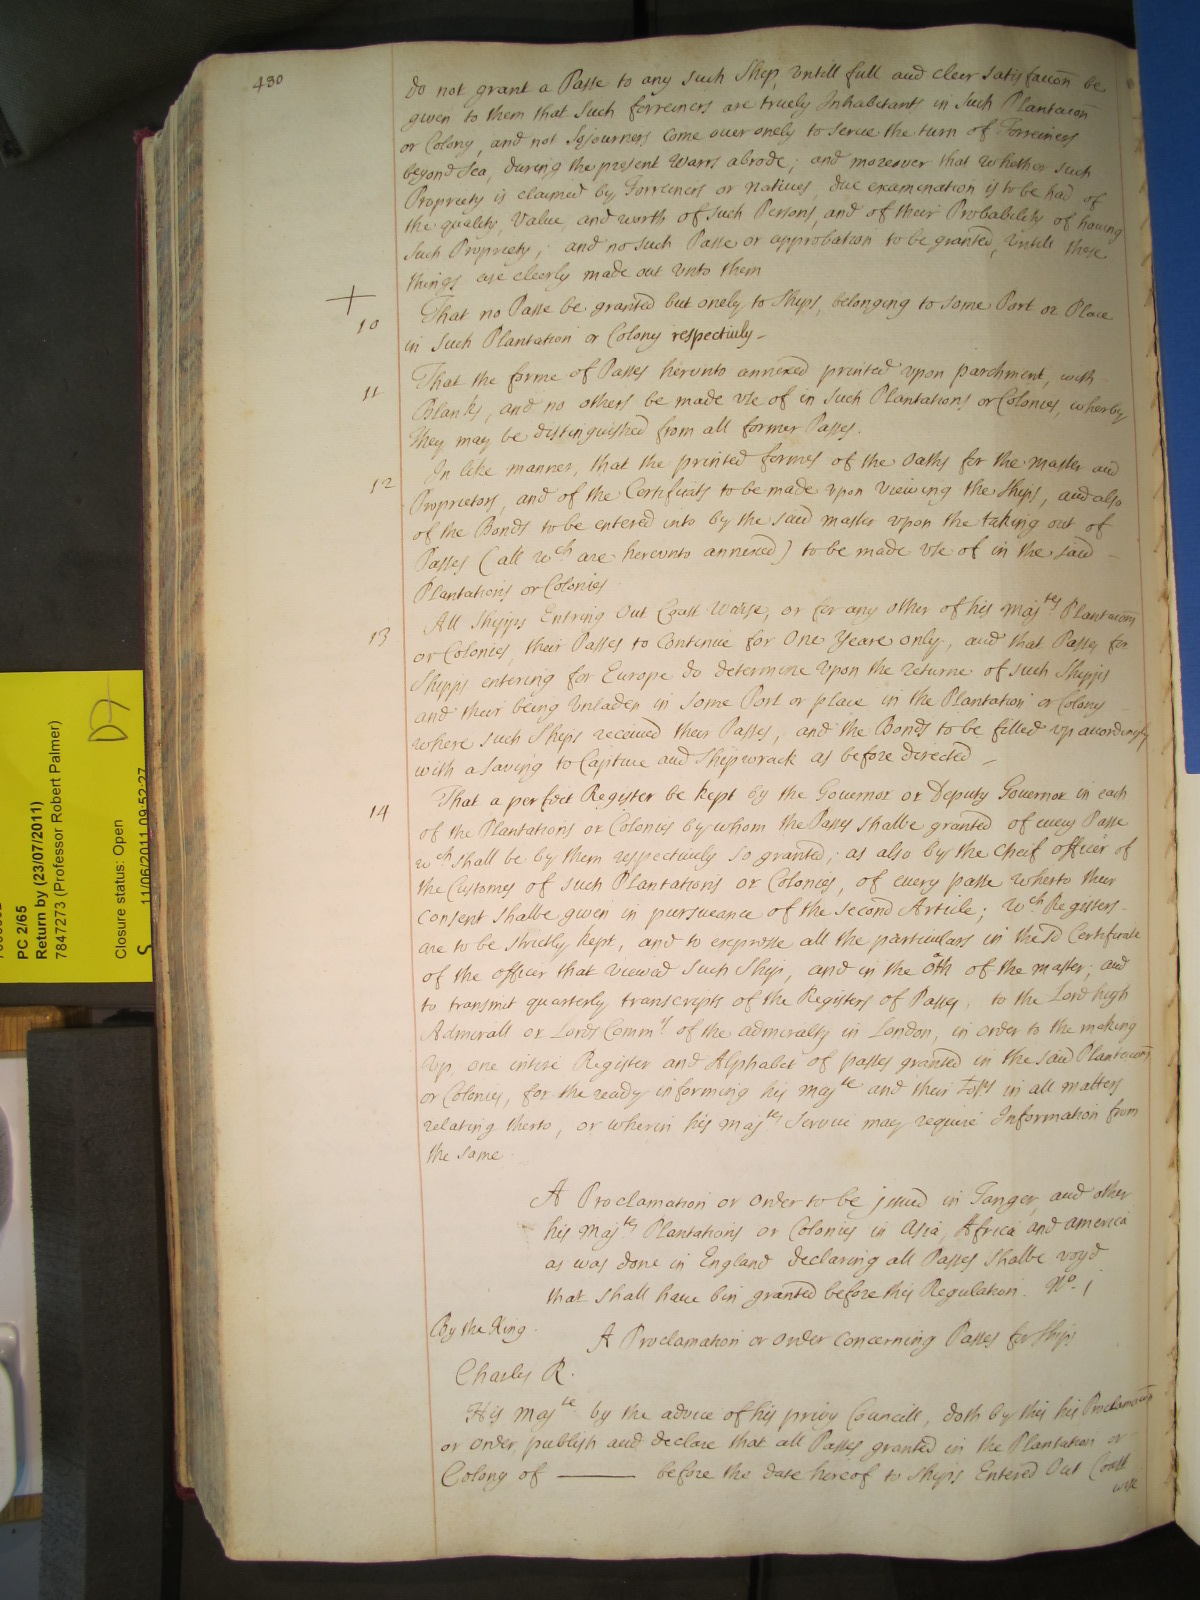 430
do not grant a Passe to any such Ship, untill full and cleer satisfaccōn be
given to them that such forreiners are truely Inhabitants in such Plantacōn
or Colony, and not Sojourners come over onely to serve the turn of Forreiners
beyond Sea, during the present Warrs abrode; and moreover that whether such
Propriety is claimed by Forreiners or Natives, due examination is to be had of
the quality, Value, and worth of such Persons, and of their Probability of having
such Propriety; and no such Passe or approbation to be granted, untill these
things are cleerly made out unto them
10 That no Passe be granted but onely to Ships, belonging to some Port or Place
in such Plantation or Colony respectiuly-
11 That the forme of Passes herunto annexed printed upon parchment, with
Blanks, and no others be made use of in such Plantations or Colonies, wherby
they may be distinguished from all former Passes.
12 In like manner, that the printed formes of the Oaths for the Master and
Proprietors, and of the Certificats to be made upon Viewing the Ships, and also
of the Bonds to be entered into by the said master upon the taking out of
Passes (all wch are hereunto annexed) to be made use of in the said
Plantations or Colonies
13 All Shipps Entring Out Coast Waise, or for any other of his Majtes Plantacōns
or Colonies, their Passes to Continue for One Yeare only, and that Passes for
Shipps entering for Europe do determine upon the returne of such Shipps
and their being Unladen in some Port or place in the Plantation or Colony
where such Ships received their Passes, and the Bonds to be filled up accordingly
with a saving to Capture and Shipwrack as before directed -
14 That a perfect Register be kept by the Governor or Deputy Governor in each
of the Plantations or Colonies by whom the Passes shalbe granted of every Passe
wch shall be by them respectively so granted; as also by the cheif officer of
the Customes of such Plantations or Colonies, of every passe wherto their
consent shalbe given in pursueance of the second Article; wch Registers
are to be strictly kept, and to expresse all the particulars in the sd Certificate
of the officer that viewed such Ship, and in the oth of the master; and
to transmit quarterly transcripts of the Registers of Passes, to the Lord high
Admirall or Lords Commrs of the admiralty in London, in order to the making
up one intire Register and Alphabet of passes granted in the said Plantacōns
or Colonies, for the ready informing his Majte and their Lopps in all matters
relating therto, or wherin his Majtes Service may require Information from
the same.
A Proclamation or order to be issued in Tanger, and other
his Majtes Plantations or Colonies in Asia, Africa and America
as was done in England declaring all Passes shalbe voyd
that shall have bin granted before this Regulation. No. 1
By the King.
A Proclamation or order concerning Passes for Ships
Charles R.
His Majte by the advice of his privy Councill, doth by this his Proclamacōn
or order, publish and declare that all Passes granted in the Plantation or
Colony of ——— before the date hereof to Ships Entered Out Coast
wise
PC 2/65
Return by (23/07/2011)
7847273 (Professor Robert Palmer)
Closure status: Open
S 11/06/2011 09:52:27